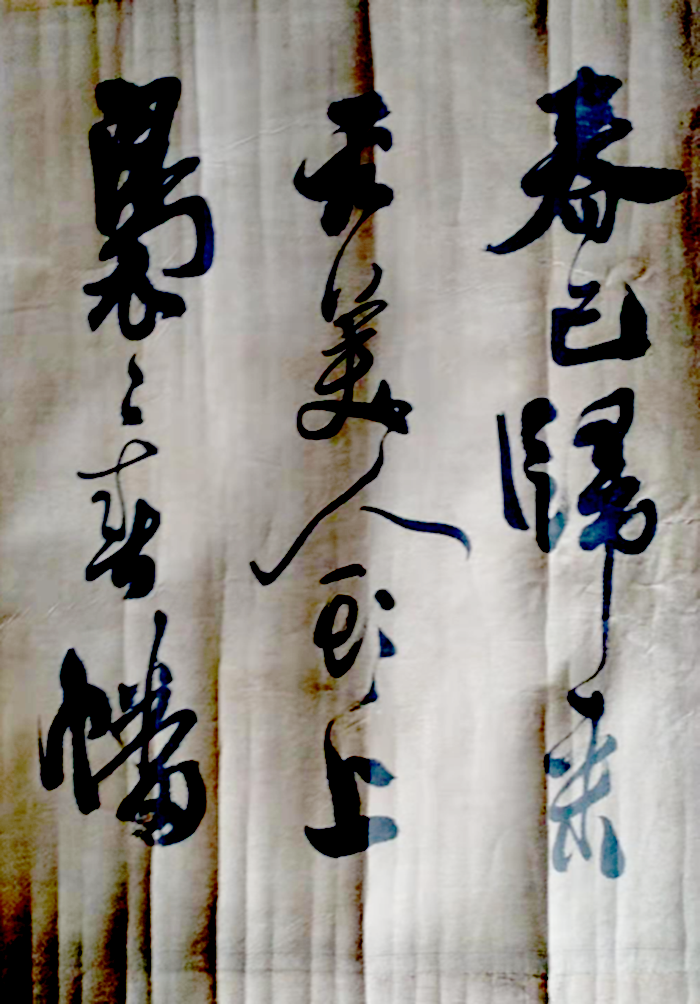 春已歸來
看美人頭上
裊々春幡